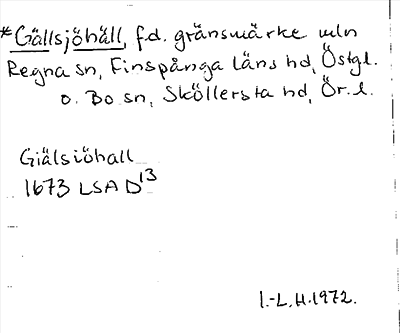 *Gällsjöhäll, f.d. gränsmärke mln
Regna sn, Finspånga läns hd, Östgl.
o. Bo sn, Sköllersta hd, Ör. l.
Giälsiöhall
1673 LSA D13
I.-L.H.1972.